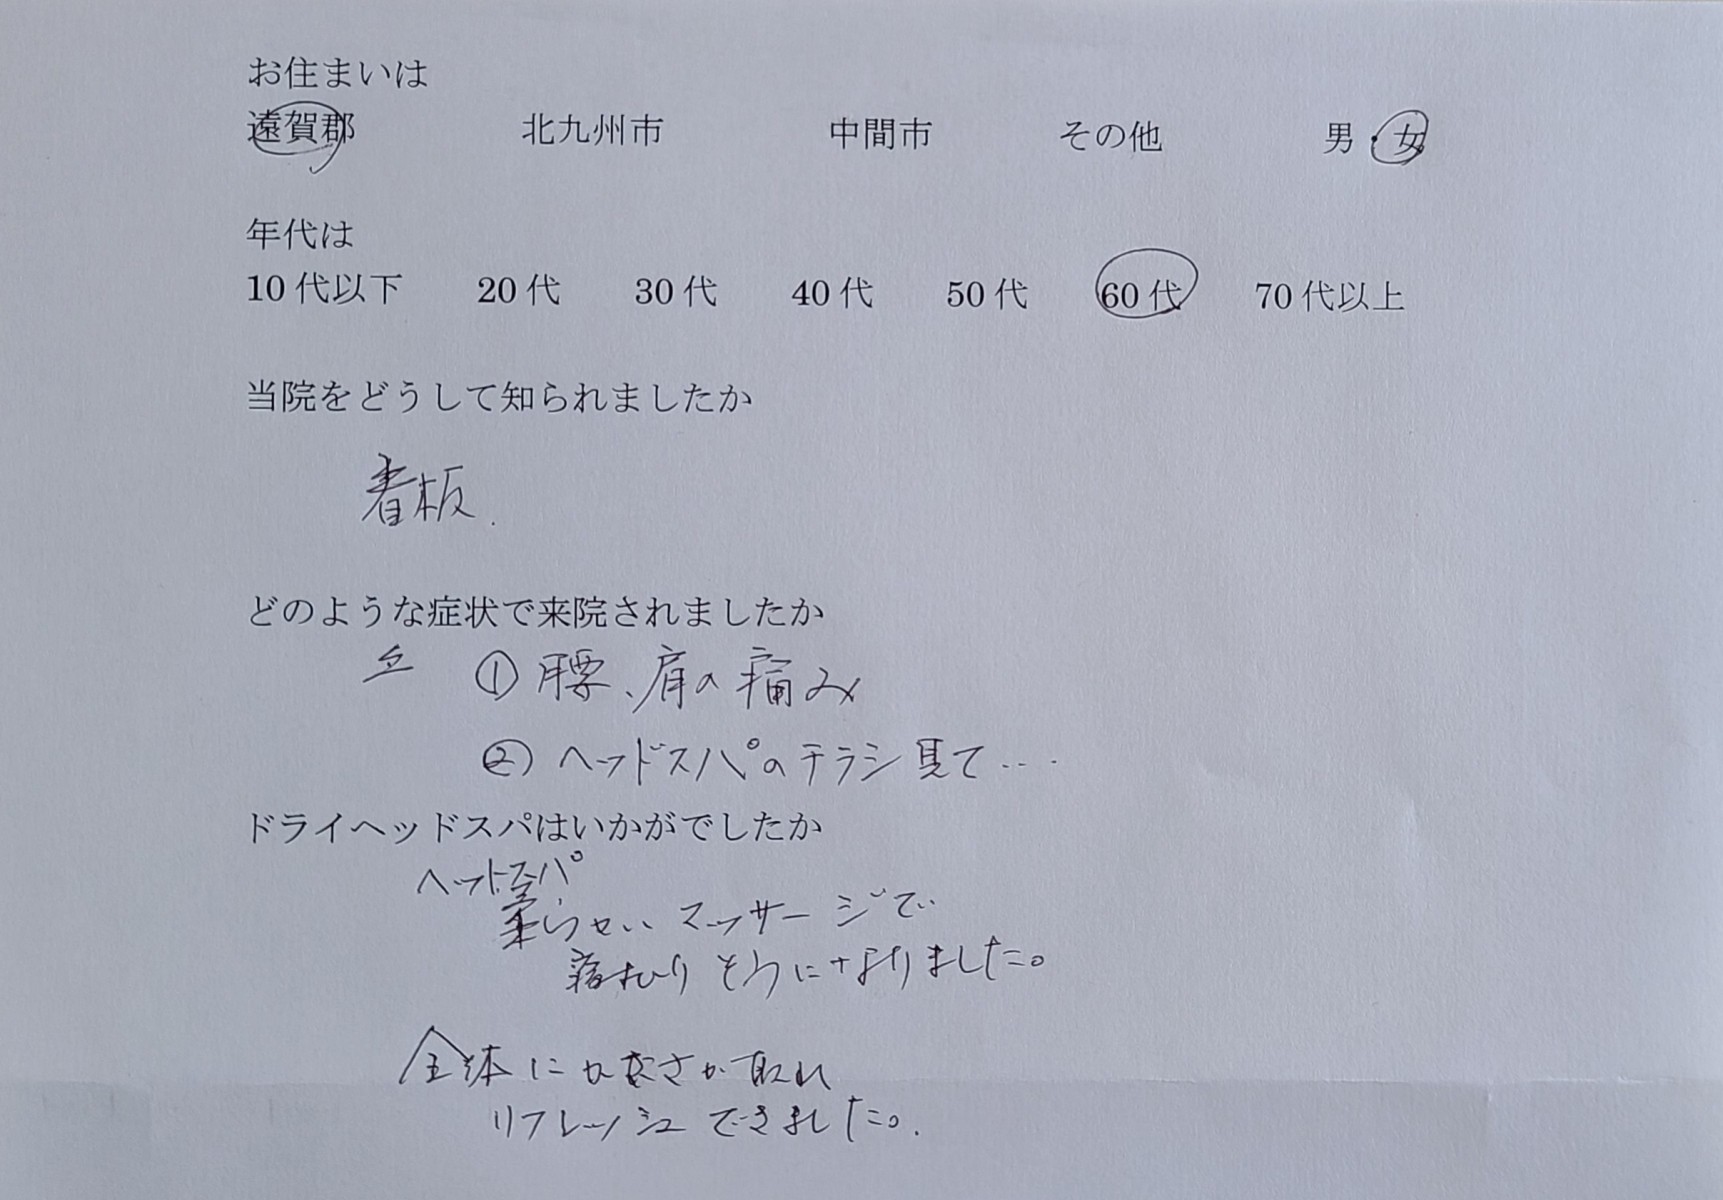 お住まいは
遠賀郡 北九州市 中間市 その他 男・女
年代は
10代以下 20代 30代 40代 50代 60代 70代以上
当院をどうして知られましたか
看板.
どのような症状で来院されましたか
① 腰、肩の痛み
② ヘッドスパのチラシ見て…
ドライヘッドスパはいかがでしたか
ヘットスパ
柔らせい マッサージで
落むりそうになりました。
全体に 取れ
リフレッシュできました。.